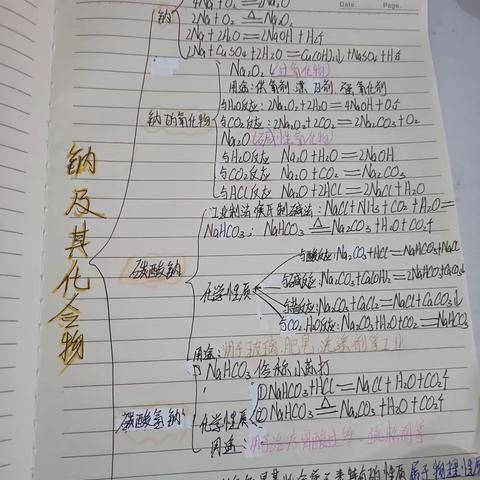 Date. Page.
4Na+O₂=2Na₂O
钠
2Na+O₂ △= Na₂O₂
2Na+2H₂O=2NaOH+H₂↑
2Na+CuSO₄+2H₂O=Cu(OH)₂↓+Na₂SO₄+H₂↑
Na₂O₂(过氧化物)
用途:供氧剂 漂白剂 强氧化剂
与H₂O反应:2Na₂O₂+2H₂O=4NaOH+O₂↑
钠的氧化物
与CO₂反应:2Na₂O₂+2CO₂=2Na₂CO₃+O₂
Na₂O(碱性氧化物)
与H₂O反应 Na₂O+H₂O=2NaOH
与CO₂反应 Na₂O+CO₂=Na₂CO₃
与HCl反应 Na₂O+2HCl=2NaCl+H₂O
钠及其化合物
工业制法 侯氏制碱法:NaCl+NH₃+CO₂+H₂O=
NaHCO₃: NaHCO₃ △= Na₂CO₃+H₂O+CO₂↑
碳酸钠
与酸反应:Na₂CO₃+HCl=NaHCO₃+NaCl
化学性质
与碱反应:Na₂CO₃+Ca(OH)₂=2NaHCO₃+CaCO₃↓
与盐反应:Na₂CO₃+CaCl₂=NaCl+CaCO₃↓
与CO₂.H₂O反应:Na₂CO₃+H₂O+CO₂=NaHCO₃
用途:用于玻璃,肥皂,洗涤剂等工业
NaHCO₃ 俗称小苏打
①NaHCO₃+HCl=NaCl+H₂O+CO₂↑
碳酸氢钠
化学性质
②NaHCO₃ △= Na₂CO₃+H₂O+CO₂↑
用途:
属于物理性质